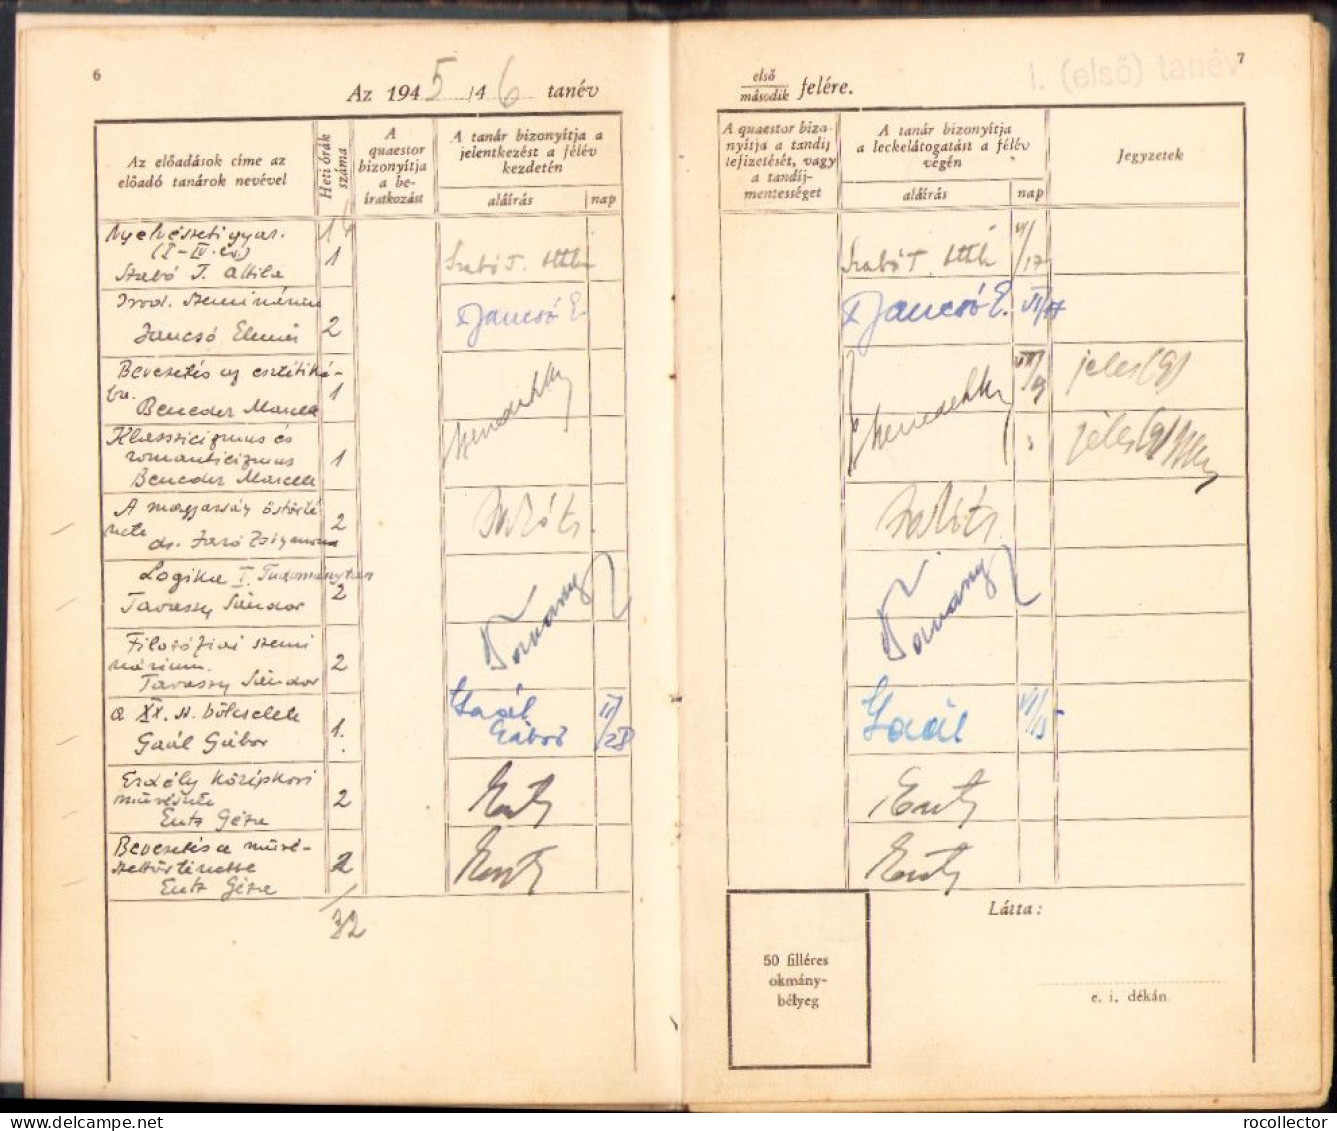 6
Az 1945/46 tanév
Az előadások címe az
előadó tanárok nevével
Heti órák
száma
A
quaestor
bizonyítja
a be-
íratkozást
A tanár bizonyítja a
jelentkezést a félév
kezdetén
aláírás
nap
Nyelvészeti gyak.
(I-IV. év)
Szabó T. Attila
16
1
Szabó T. Attila
Irod. szeminárium
Jancsó Elemér
2
Jancsó E.
Bevezetés az esztétiká-
ba.
Benedek Marcell
1
Klasszicizmus és
romanticizmus
Benedek Marcell
1
A magyarság őstörté
nete
dr. Jakó Zsigmond
2
Jakó Zs.
Logika I. Tudománytan
Tavaszy Sándor
2
Filozófiai szemi
nárium.
Tavaszy Sándor
2
A XX. sz. bölcselete
Gaál Gábor
1.
Gaál
Gábor
II/28
Erdély középkori
művészete
Entz Géza
2
Entz
Bevezetés a művé-
szettörténetbe
Entz Géza
2
Entz
32
7
I. (első) tanév
első
második felére.
A quaestor bizo-
nyítja a tandíj
lefizetését, vagy
a tandíj-
mentességet
A tanár bizonyítja
a leckelátogatást a félév
végén
aláírás
nap
Jegyzetek
Szabó T. Attila
VI/17
Jancsó E.
VI/17
jeles
jeles
Jakó Zs.
Gaál
VI/15
Entz
Entz
50 filléres
okmány-
bélyeg
Látta:
e. i. dékán
rocollector